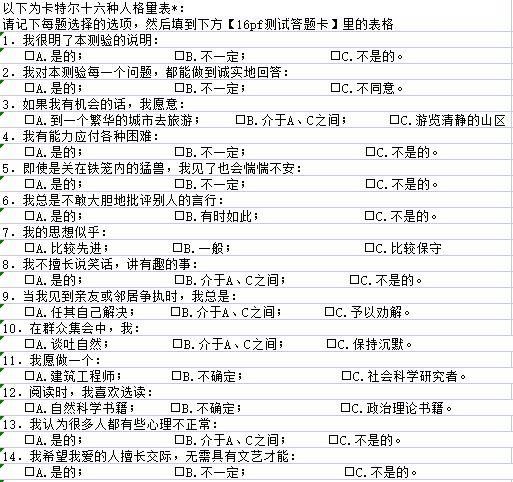 以下为卡特尔十六种人格量表*:
请记下每题选择的选项，然后填到下方【16pf测试答题卡】里的表格
1. 我很明了本测验的说明:
□A. 是的; □B. 不一定; □C. 不是的。
2. 我对本测验每一个问题，都能做到诚实地回答:
□A. 是的; □B. 不一定; □C. 不同意。
3. 如果我有机会的话，我愿意:
□A. 到一个繁华的城市去旅游; □B. 介于A、C之间; □C. 游览清静的山区
4. 我有能力应付各种困难:
□A. 是的; □B. 不一定; □C. 不是的。
5. 即使是关在铁笼内的猛兽，我见了也会惴惴不安:
□A. 是的; □B. 不一定; □C. 不是的。
6. 我总是不敢大胆地批评别人的言行:
□A. 是的; □B. 有时如此; □C. 不是的。
7. 我的思想似乎:
□A. 比较先进; □B. 一般; □C. 比较保守
8. 我不擅长说笑话，讲有趣的事:
□A. 是的; □B. 介于A、C之间; □C. 不是的。
9. 当我见到亲友或邻居争执时，我总是:
□A. 任其自己解决; □B. 介于A、C之间; □C. 予以劝解。
10. 在群众集会中，我:
□A. 谈吐自然; □B. 介于A、C之间; □C. 保持沉默。
11. 我愿做一个:
□A. 建筑工程师; □B. 不确定; □C. 社会科学研究者。
12. 阅读时，我喜欢选读:
□A. 自然科学书籍; □B. 不确定; □C. 政治理论书籍。
13. 我认为很多人都有些心理不正常:
□A. 是的; □B. 介于A、C之间; □C. 不是的。
14. 我希望我爱的人擅长交际，无需具有文艺才能:
□A. 是的; □B. 不一定; □C. 不是的。